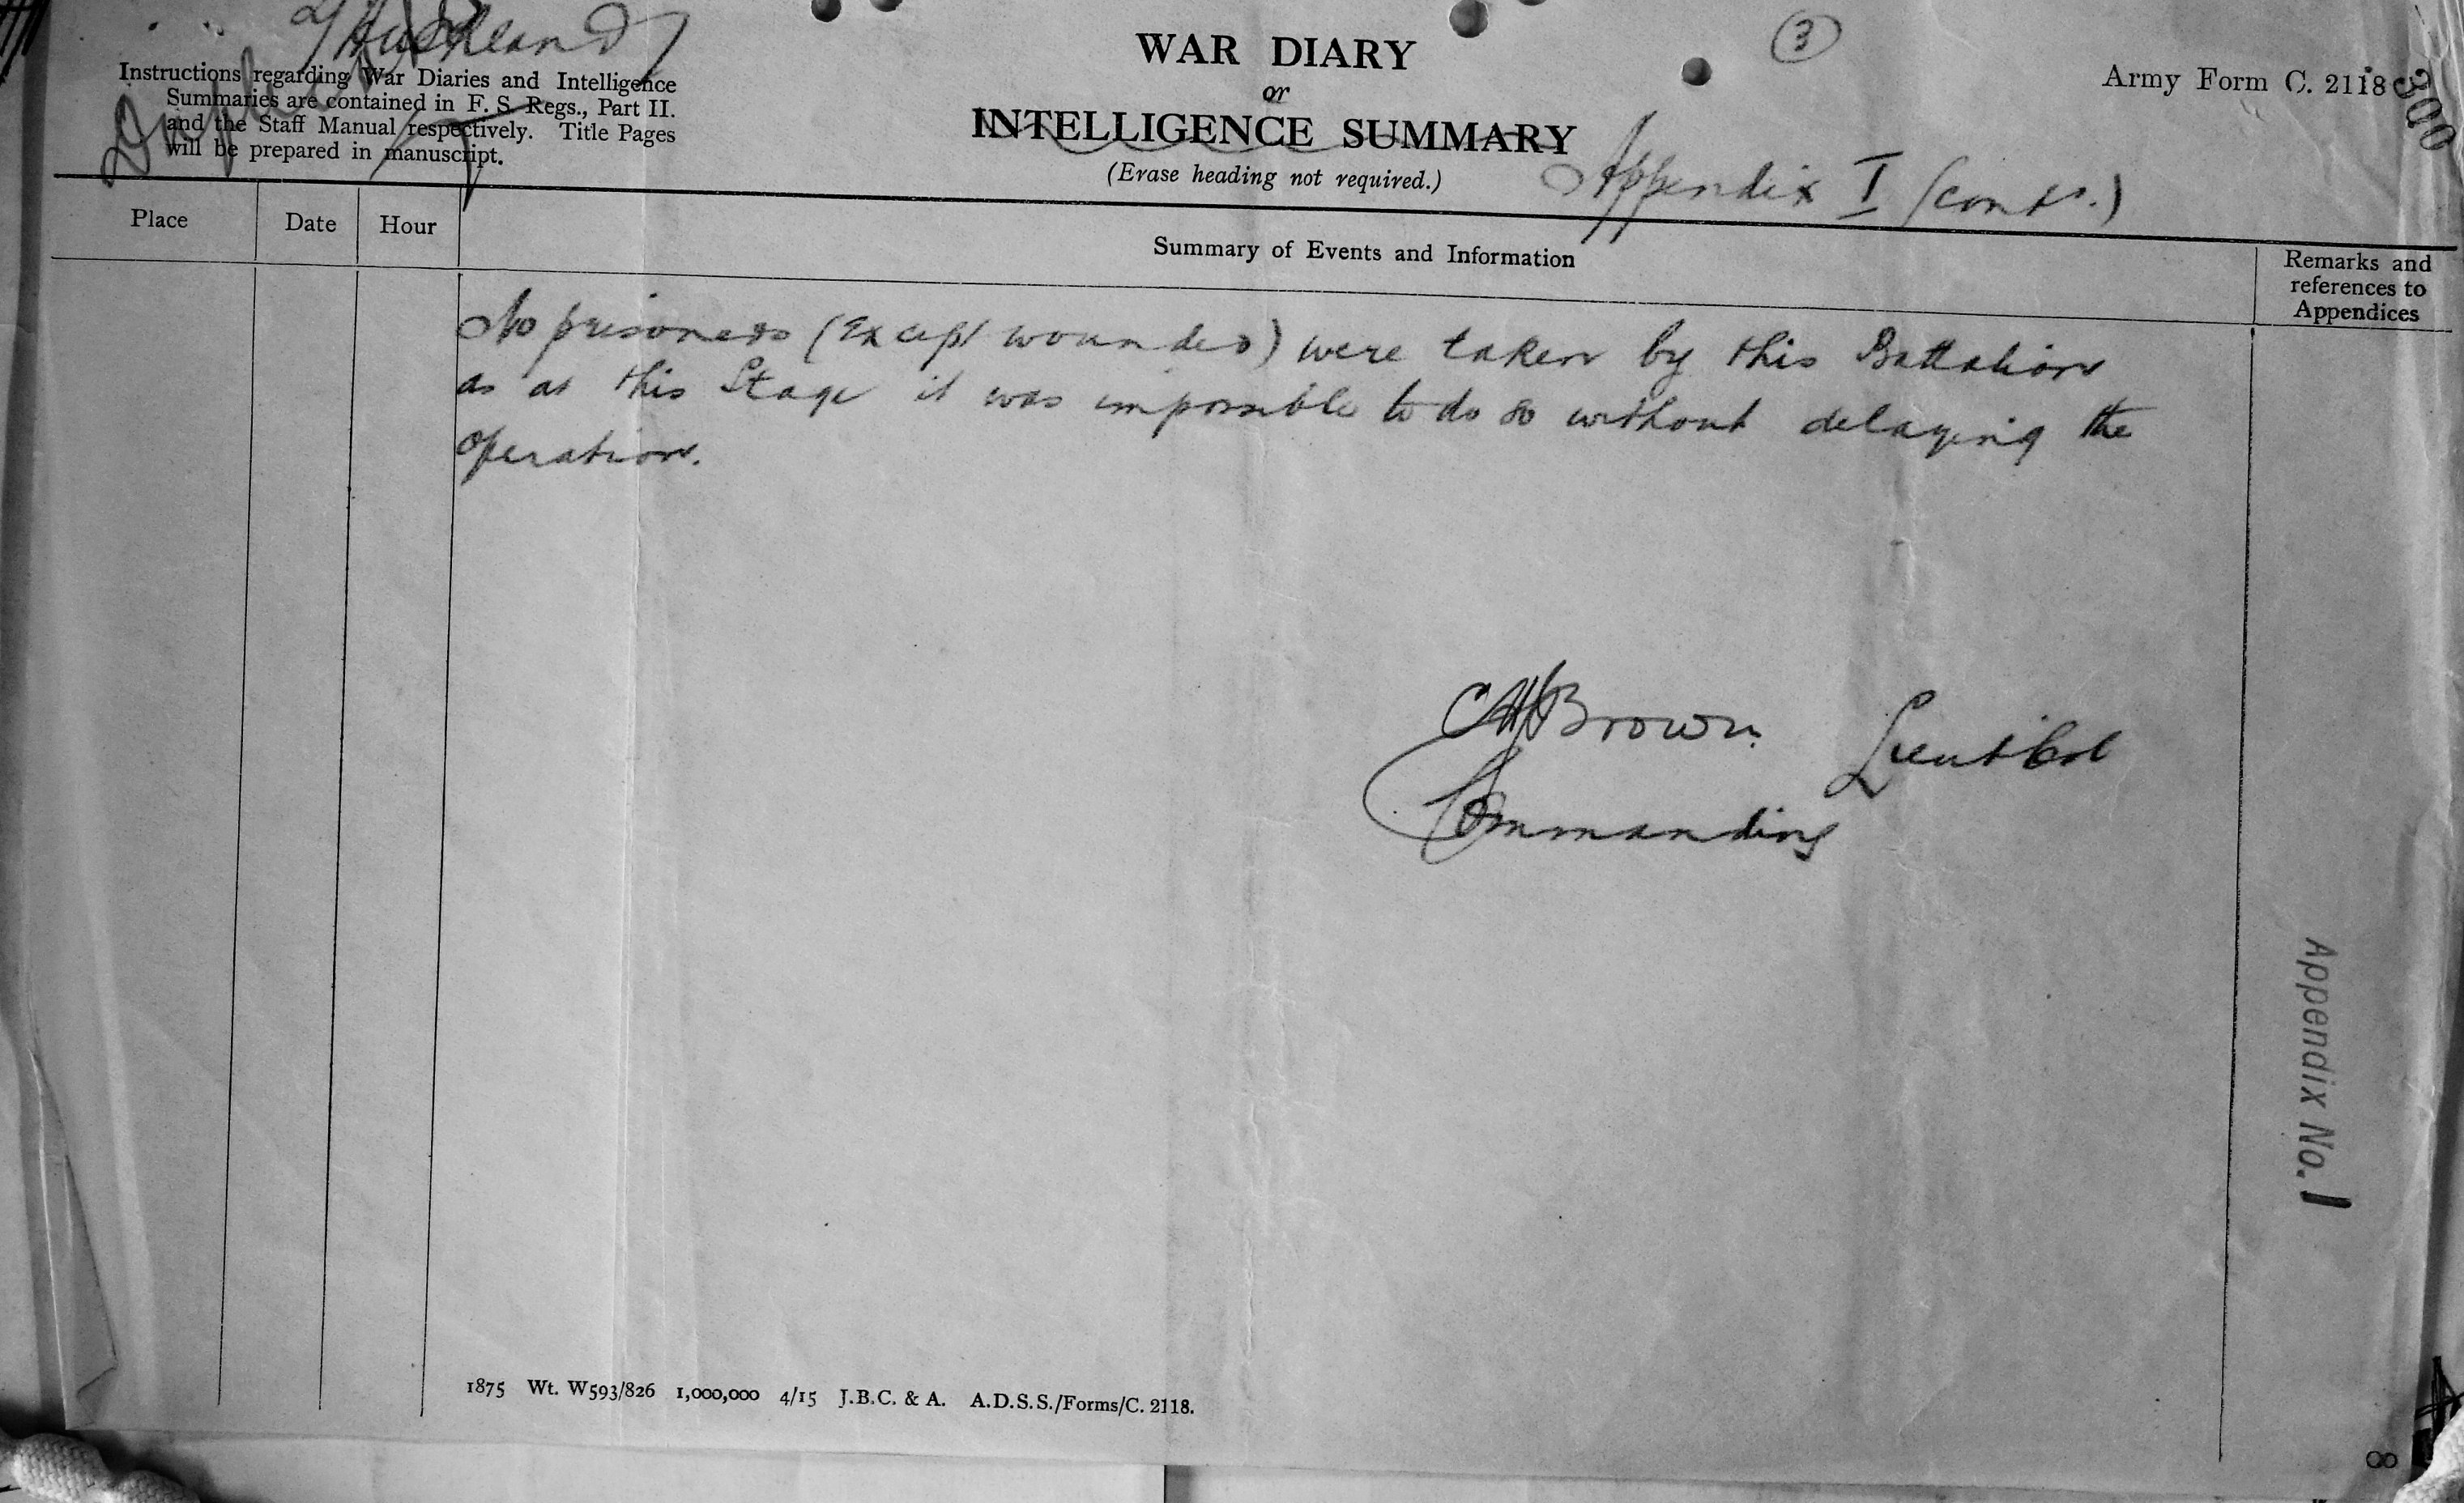 2 Auckland
Instructions regarding War Diaries and Intelligence
Summaries are contained in F. S. Regs., Part II.
and the Staff Manual respectively. Title Pages
will be prepared in manuscript.
WAR DIARY
or
INTELLIGENCE SUMMARY
(Erase heading not required.)
3
Army Form C. 2118
300
Appendix I (contd.)
Place
Date
Hour
Summary of Events and Information
Remarks and
references to
Appendices
No prisoners (Except wounded) were taken by this Battalion
as at this Stage it was impossible to do so without delaying the
operation.
Brown Lieut Col
Commanding
Appendix No. 1
1875 Wt. W593/826 1,000,000 4/15 J.B.C. & A. A.D.S.S./Forms/C. 2118.